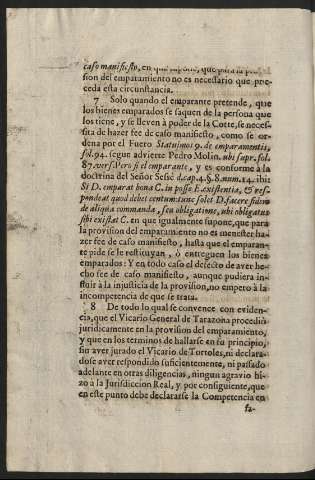 caso manifiesto, en que supone, que para la provi-
sion del emparamiento no es necessario que pre-
ceda esta circunstancia.
7 Solo quando el emparante pretende, que
los bienes emparados se saquen de la persona que
los tiene, y se lleven à poder de la Corte, se neces-
sita de hazer fee de caso manifiesto, como se or-
dena por el Fuero Statuimos 9. de emparamentis,
fol. 94. segun advierte Pedro Molin. ubi supr. fol.
87. vers. Pero si el emparante, y es conforme à la
doctrina del Señor Sessè d. cap. 4. §. 8. num. 14. ibi:
Si D. emparat bona C. in posse E. existentia, & res-
pondeat quod debet centum: tunc solet D. facere fidem
de aliqua commanda, seu obligatione, ubi obligatus
sibi existat C. en que igualmente supone, que para
la provision del emparamiento no es menester ha-
zer fee de caso manifiesto, hasta que el emparan-
te pide se le restituyan, ò entreguen los bienes
emparados: Y en todo caso el defecto de aver he-
cho fee de caso manifiesto, aunque pudiera in-
fluir à la injusticia de la provision, no empero à la
incompetencia de que se trata.
8 De todo lo qual se convence con eviden-
cia, que el Vicario General de Tarazona procediò
juridicamente en la provision del emparamiento,
y que en los terminos de hallarse en su principio,
sin aver jurado el Vicario de Tortoles, ni declara-
dose aver respondido suficientemente, ni passado
adelante en otras diligencias, ningun agravio hi-
zo à la Jurisdiccion Real, y por consiguiente, que
en este punto debe declararse la Competencia en
fa-